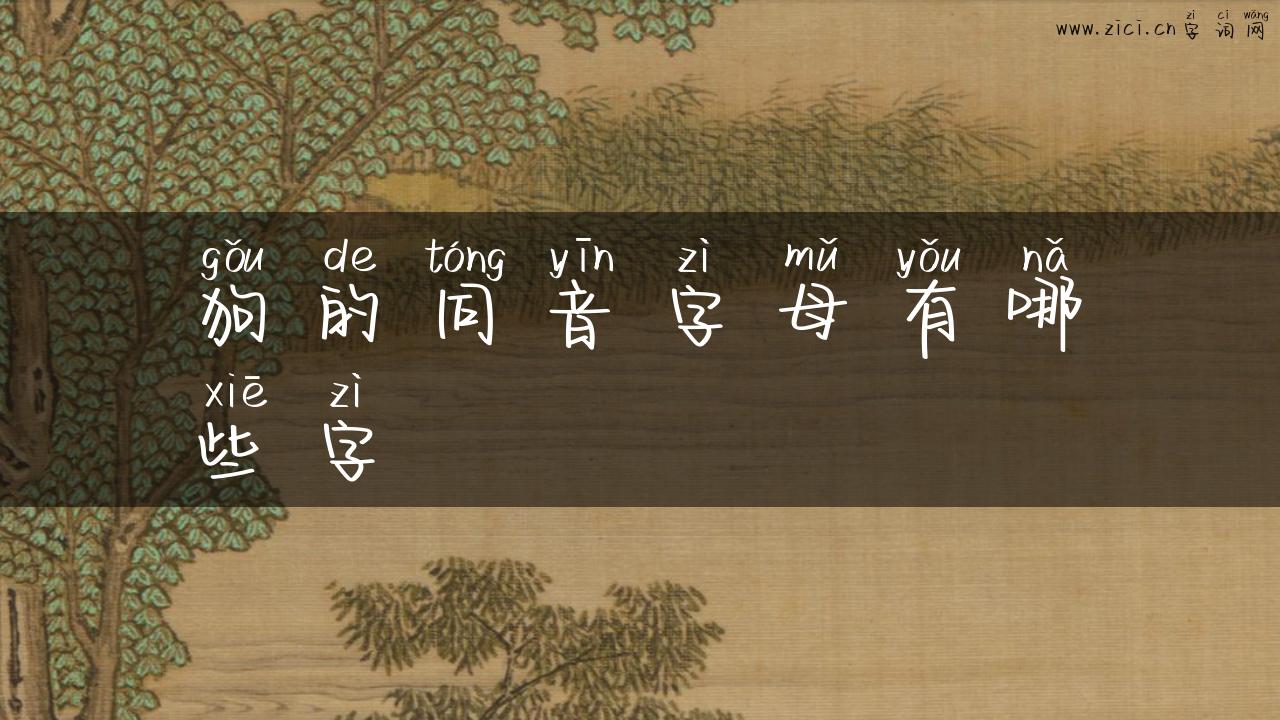 zì cí wǎng
www.zici.cn字词网
gǒu de tóng yīn zì mǔ yǒu nǎ
狗的同音字母有哪
xiē zì
些字